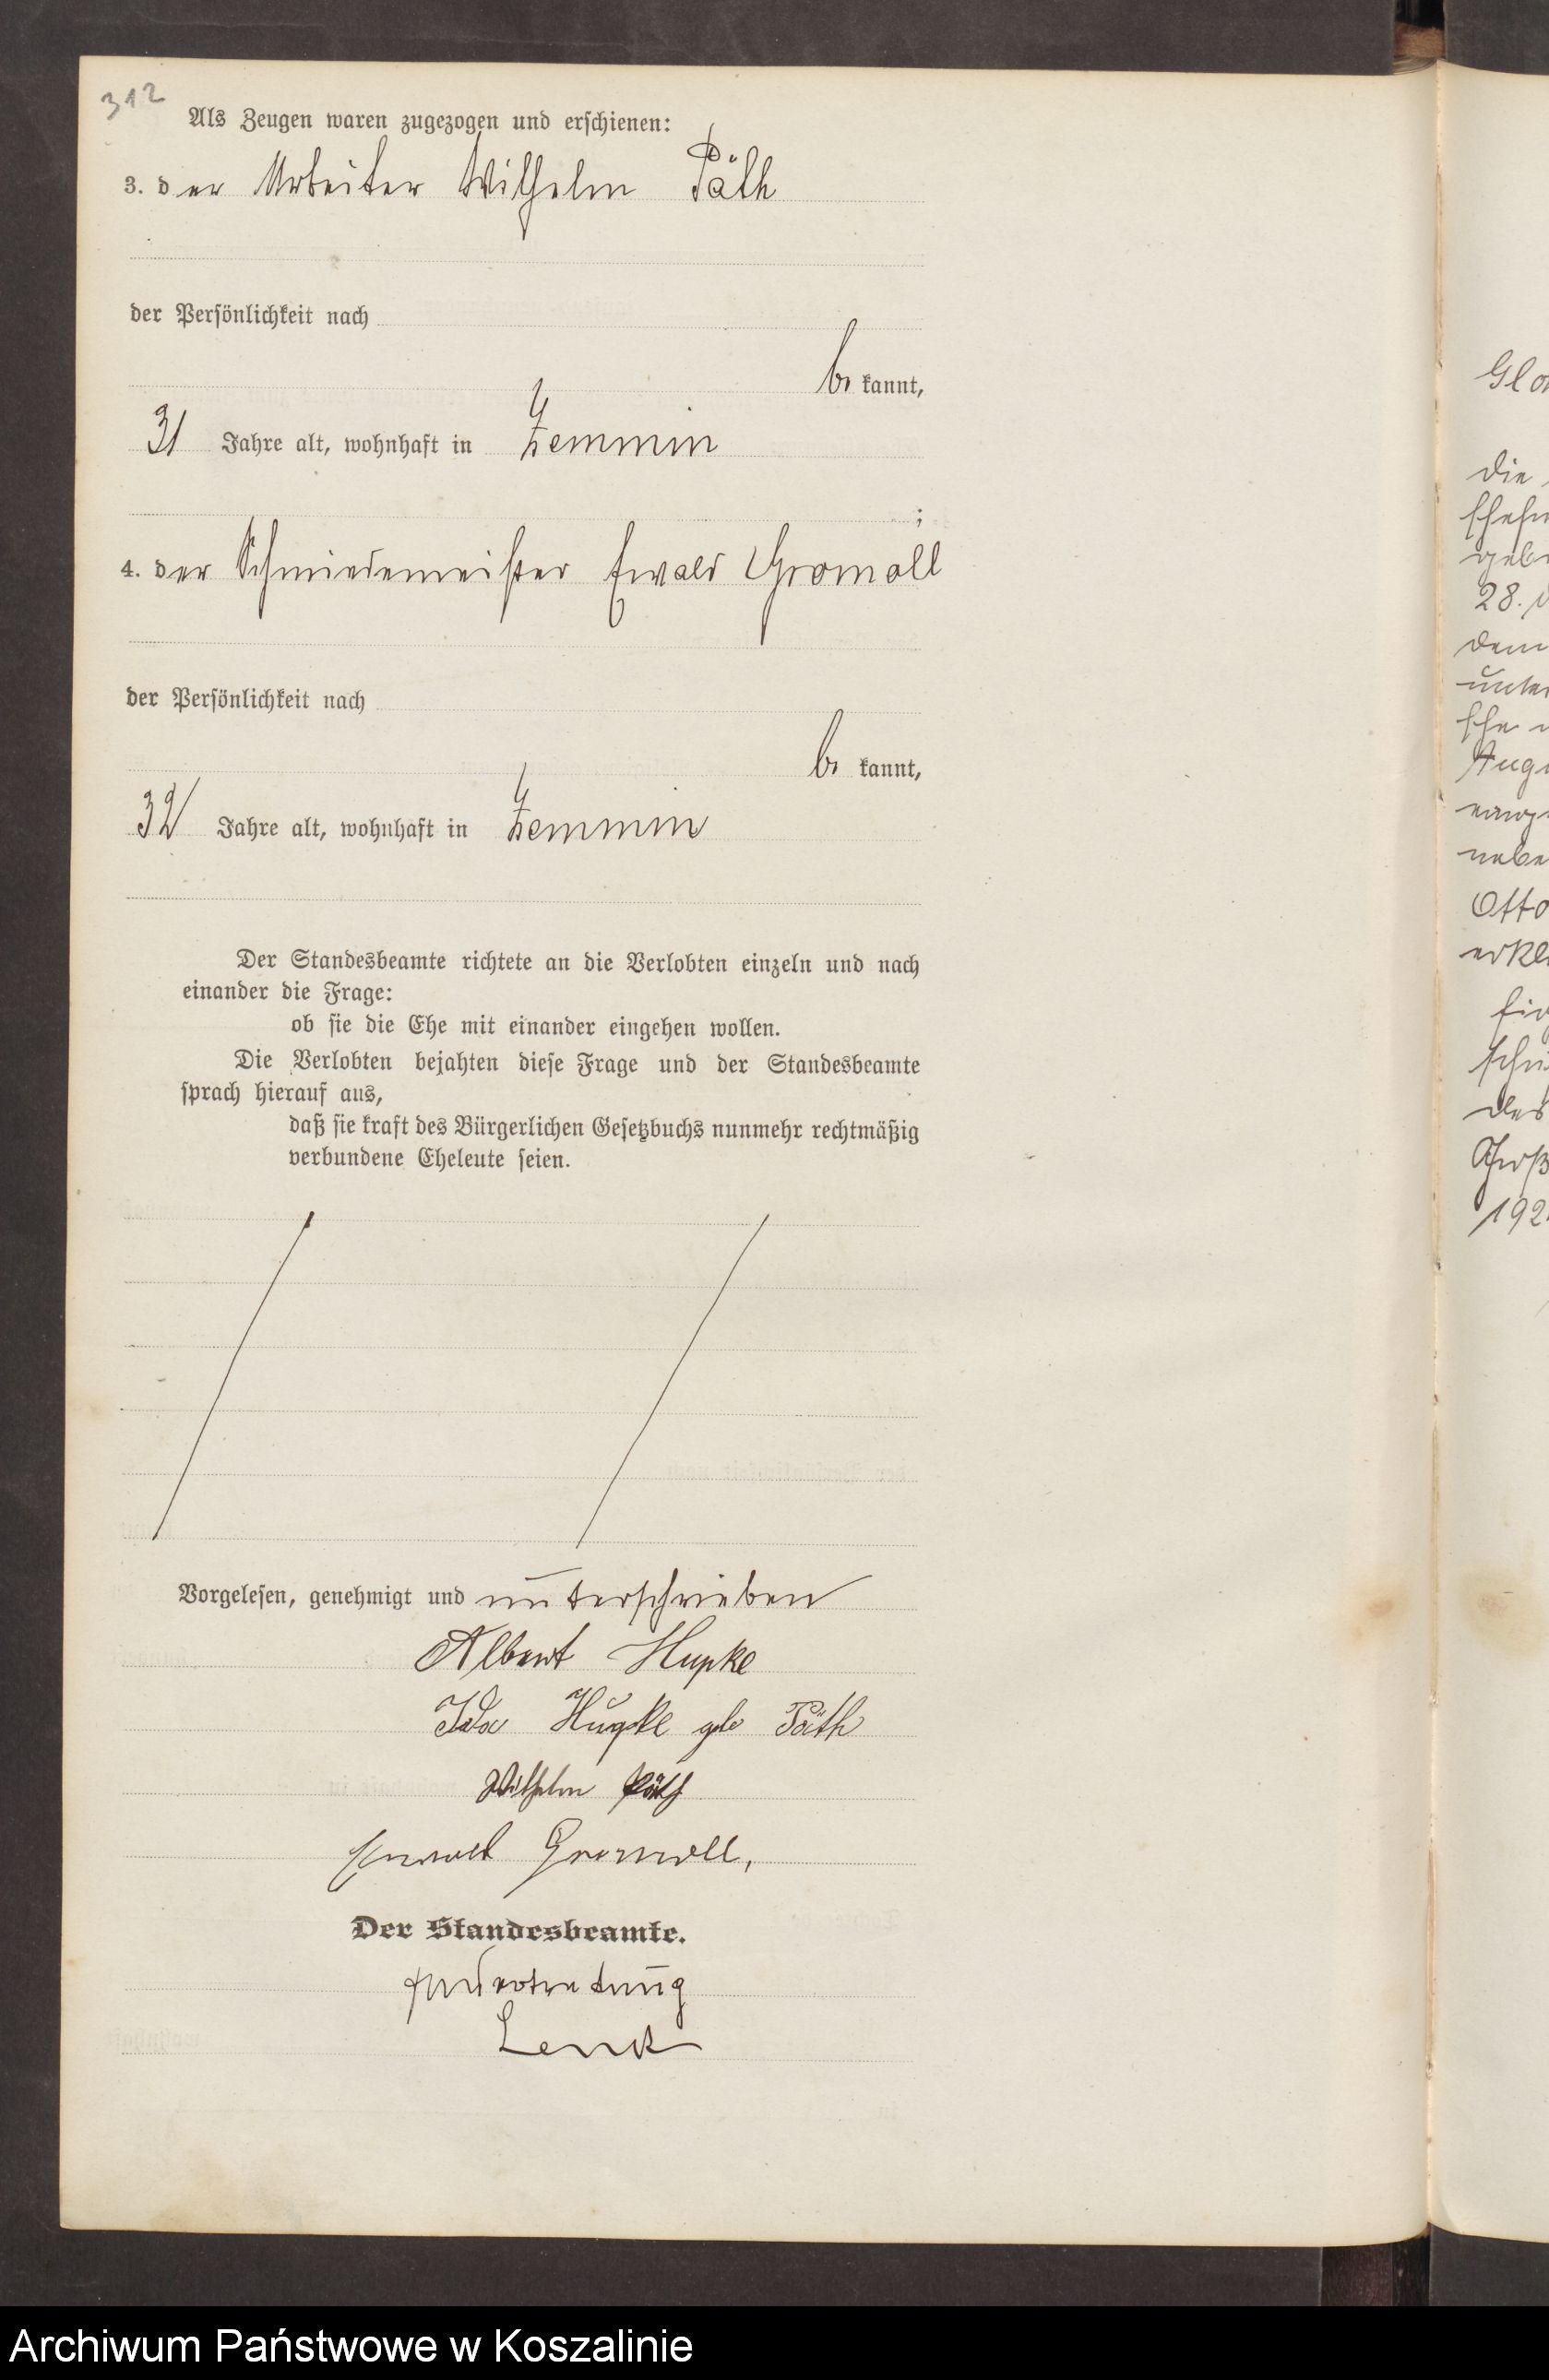 312
Als Zeugen waren zugezogen und erschienen:
3. der Arbeiter Wilhelm Päth
der Persönlichkeit nach
be kannt,
31 Jahre alt, wohnhaft in Zemmin
;
4. der Schmiedemeister Ewald Gromoll
der Persönlichkeit nach
be kannt,
32 Jahre alt, wohnhaft in Zemmin
Der Standesbeamte richtete an die Verlobten einzeln und nach
einander die Frage:
ob sie die Ehe mit einander eingehen wollen.
Die Verlobten bejahten diese Frage und der Standesbeamte
sprach hierauf aus,
daß sie kraft des Bürgerlichen Gesetzbuchs nunmehr rechtmäßig
verbundene Eheleute seien.
Vorgelesen, genehmigt und unterschrieben
Albert Hupke
Ida Hupke geb Päth
Wilhelm Päth
Ewald Gromoll,
Der Standesbeamte.
In Vertretung
Lenck
die
28.
dem
Otto
des
Archiwum Państwowe w Koszalinie